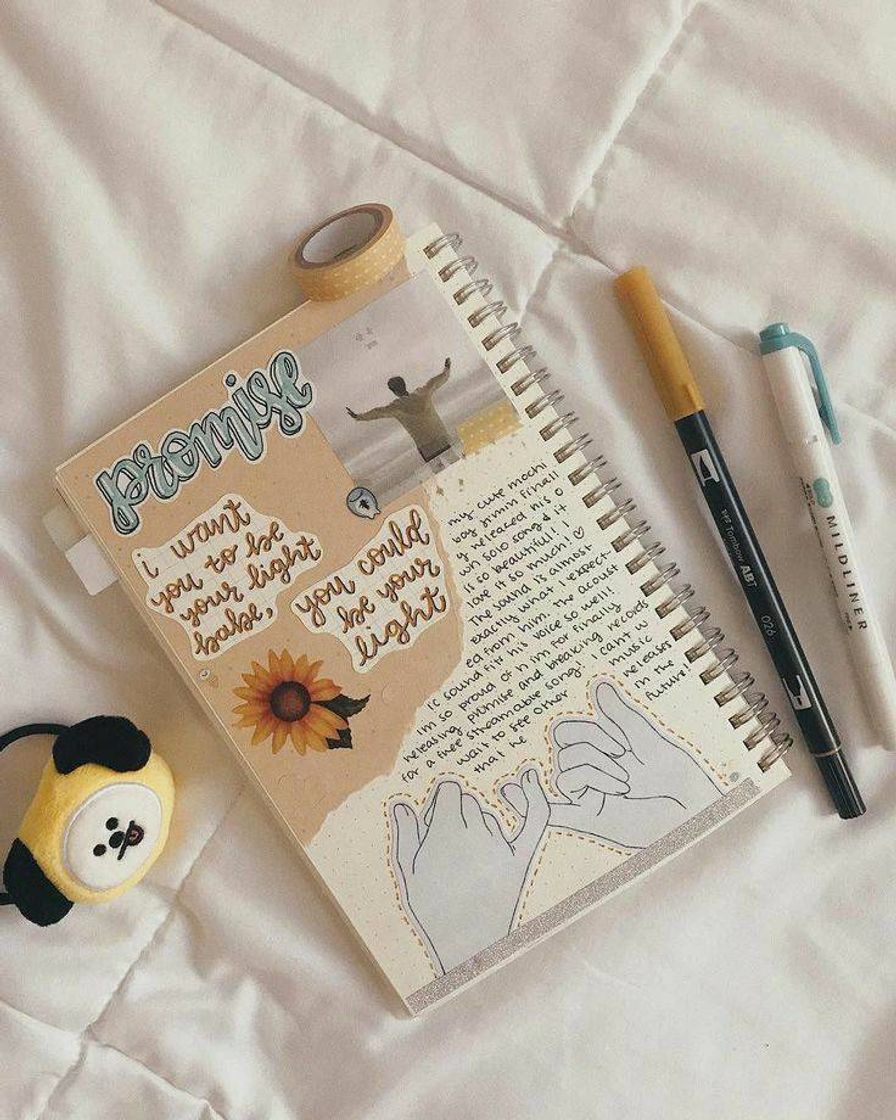 promise
i want
you to be
your light
babe,
you could
be your
light
my cute mochi
boy jimin finall
y released his o
wn solo song & it
is so beautiful! I
love it so much! ♡
The sound is almost
exactly what i expect-
ed from him, the acoust
ic sound fits his voice so well!
im so proud of him for finally
releasing promise and breaking records
for a free streamable song! i cant w
ait to see other music
that he releases
in the
future!
Tombow ABT
026
MILDLINER